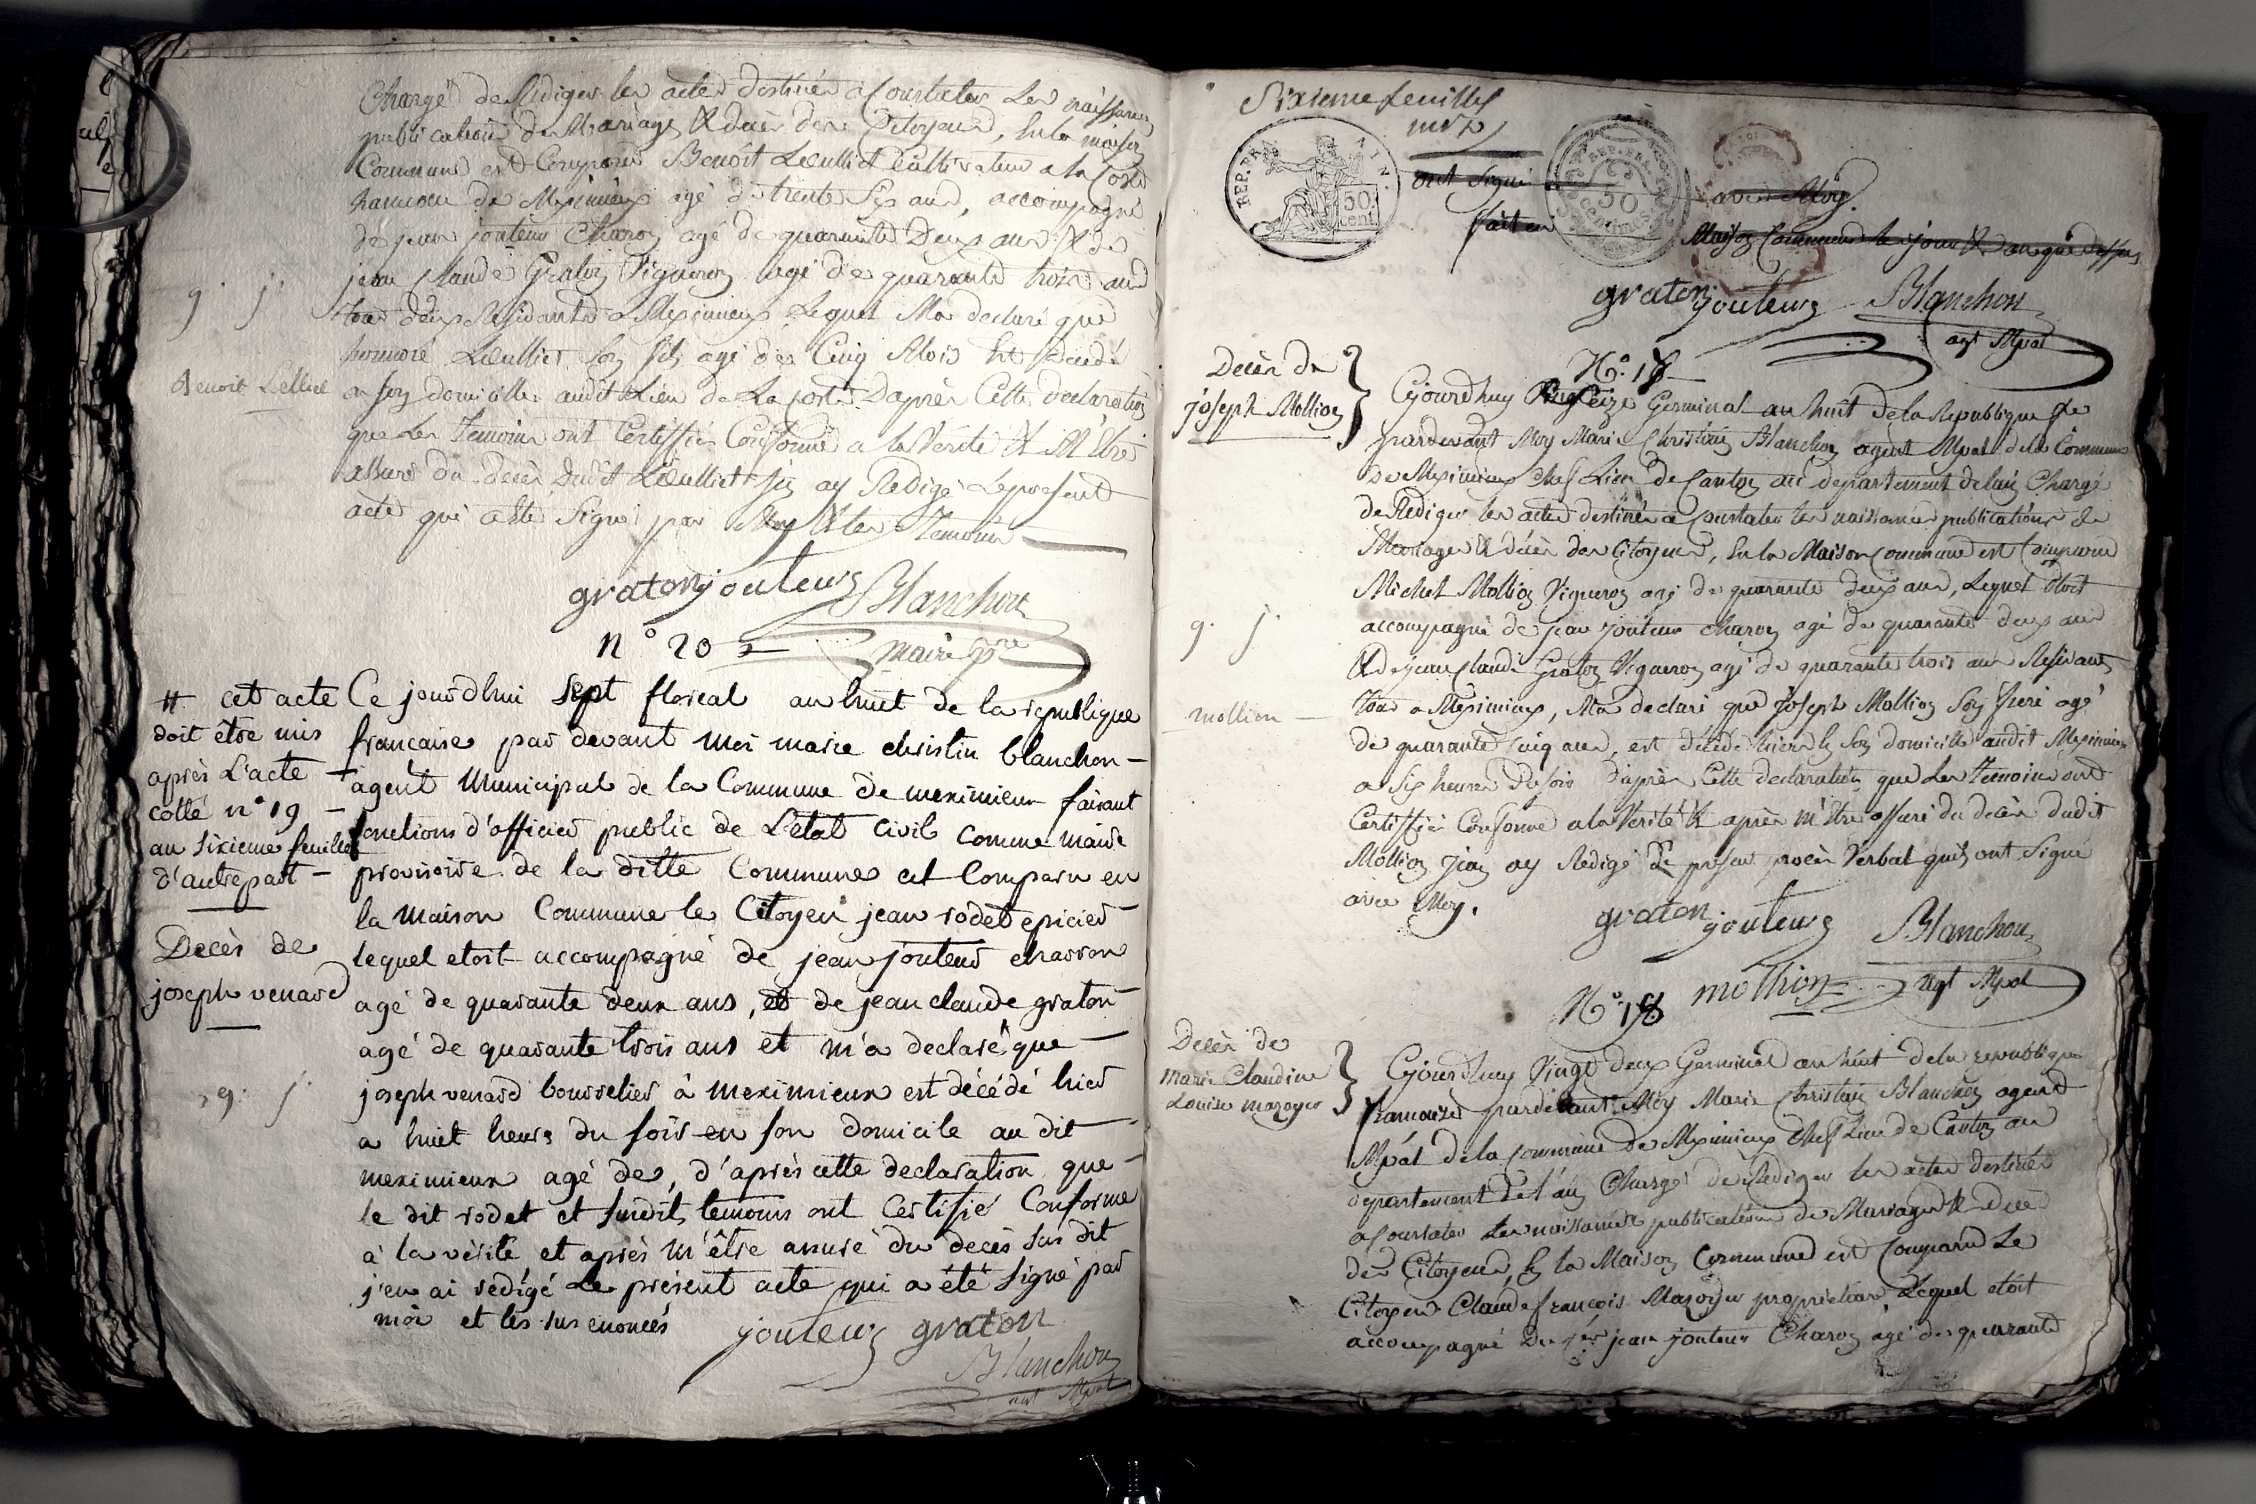 Chargé de Rediger les actes destinés a Constater Les naissances
publications de Mariages & deces des Citoyens, En la maison
Commune est Comparu Benoit Lieulliet Cultivateur a la Coste
hameau de Meximieux agé de trente Six ans, accompagné
de jean jouteur Charon agé de quarante Deux ans & de
jean Claude Graton Vigneron agé de quarante trois ans
tous deux Residants a Meximieux Lequel M'a declaré que
honnoré Lieulliet Son fils agé de Cinq Mois Est decedé
a son domicille audit Lieu de La Coste D'après Cette declaration
que Les Temoins ont Certiffié Conforme a la Verité & M'Etre
assuré du decès Dudit Lieulliet j'en ay Redigé Le present
acte qui a Eté Signé par Moy & les Temoins
g. j.
Benoit Lelliet
graton jouteur Blanchon
maire pre
n° 20
# cet acte
doit être mis
après L'acte
cotté n° 19
au sixieme feuillet
d'autrepart
Decès de
joseph venard
g. j.
Ce jourdhui Sept floreal an huit de la republique
française par devant moi marie christin blanchon
agent municipal de la Commune de meximieux faisant
fonctions d'officier public de L'etat civil comme maire
provisoire de la ditte Commune est Comparu en
la maison Commune le Citoyen jean rodet epicier
lequel etoit accompagné de jean jouteur charron
agé de quarante deux ans, et de jean claude graton
agé de quarante trois ans et m'a declaré que
joseph venard bourrelier à meximieux est décédé hier
a huit heures du soir en son domicile au dit
meximieux agé de, d'après cette declaration que
le dit rodet et susdits temoins ont Certifié Conforme
à la vérité et après m'être assuré du decès sus dit
j'en ai rédigé Le présent acte qui a été signé par
moi et les sus enoncés
jouteur graton
Blanchon
agt Mpal
Sixieme feuillet
REP. FRA. 50 cent.
REP. FRA. 50 centimes
ont Signé avec Moy.
fait en Maison Commune les jour & an que dessus
graton jouteur Blanchon
agt Mpal
N.° 18
Decès de
joseph Mollion
Cejourdhuy Seize Germinal an huit de la Republique fse
pardevant Moy Marie Christin Blanchon agent Mpal de la Commune
de Meximieux Chef Lieu de Canton au departement de lain Chargé
de Rediger les actes destinés a Constater les naissances publications de
Mariages & decès des Citoyens, En la Maison Commune est Comparu
Michel Mollion Vigneron agé de quarante deux ans, Lequel Etoit
accompagné de jean jouteur charon agé de quarante deux ans
& de jean Claude Graton Vigneron agé de quarante trois ans Residants
tous a Meximieux, M'a declaré que Joseph Mollion Son frere agé
de quarante Cinq ans, est décédé hier En Son domicille audit Meximieux
a Six heures Du soir D'après Cette declaration que Les Temoins ont
Certiffié Conforme a la Verité & après m'être assuré du decès dudit
Mollion j'en ay Redigé Le present procès Verbal qu'ils ont Signé
avec Moy.
g. j.
mollion
graton jouteur Blanchon
mollion agt Mpal
N.° 18
Decès de
Marie Claudine
Louise mazoyer
Cejourdhuy Vingt deux Germinal an huit de la republique
francaise pardevant Moy Marie Christin Blanchon agent
Mpal de la Commune de Meximieux Chef Lieu de Canton au
departement De l'ain Chargé de Rediger les actes destinés
a Constater Les naissances publications de Mariages & deces
des Citoyens, En la Maison Commune est Comparu Le
Citoyen Claude françois Mazoyer proprietaire, Lequel etoit
accompagné De jean jouteur Charon agé de quarante